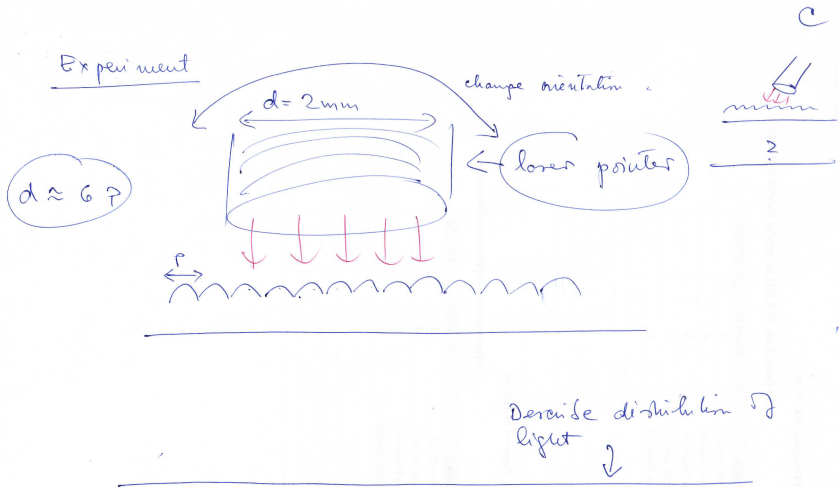 C
Experiment
change orientation.
d = 2mm
laser pointer
?
d ≈ 6 P
P
Describe distribution of
light